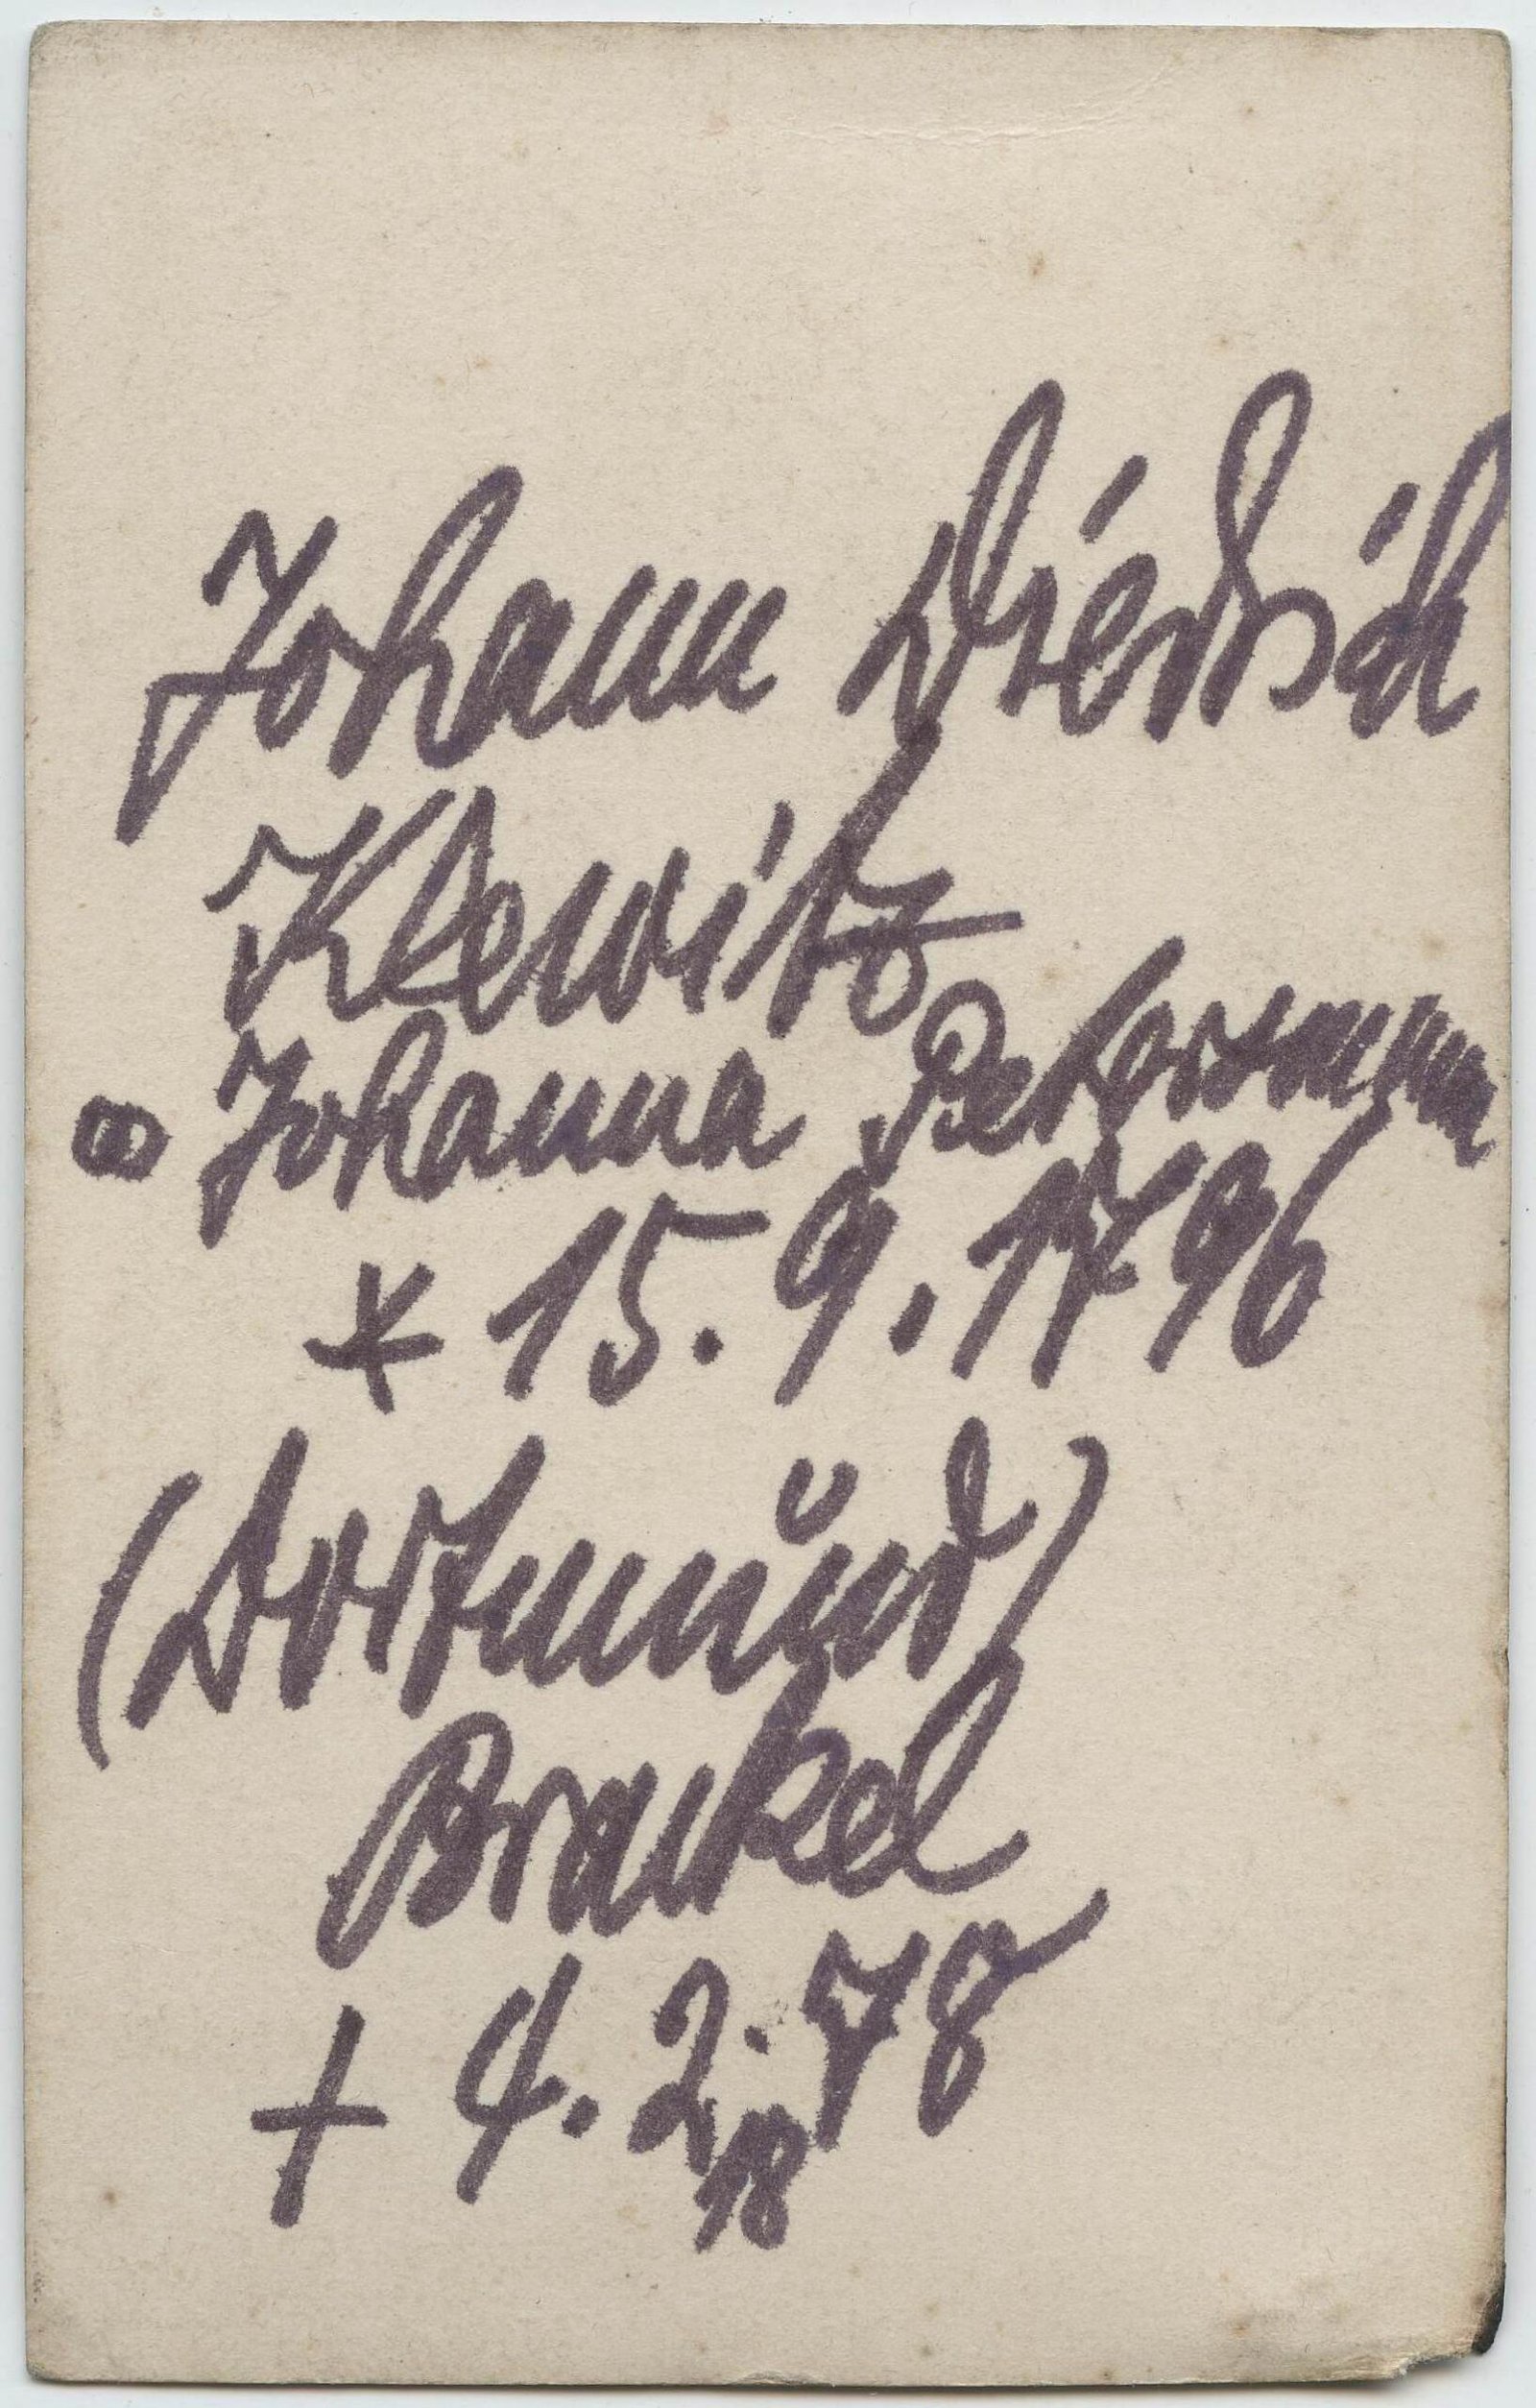 Johann Diedrich
Klewitz
∞ Johanna Petersmann
* 15. 9. 1796
(Dortmund)
Brackel
+ 4. 2. 78
18